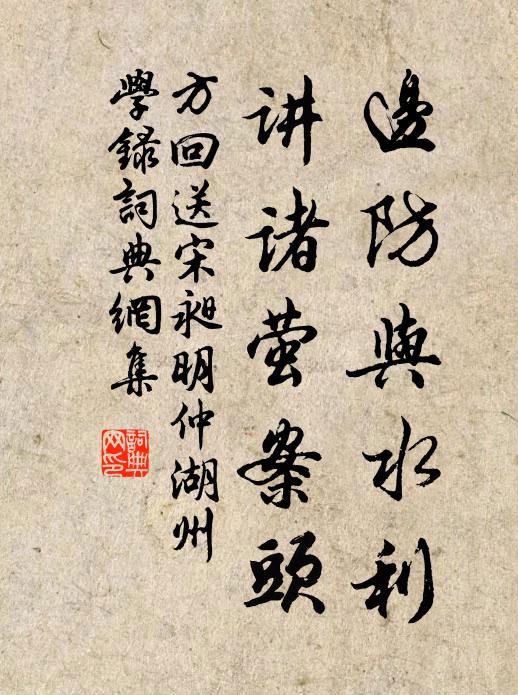 邊防與水利
讲诸萤案頭
方回送宋昶明仲湖州
學録詞典網集
詞典網印